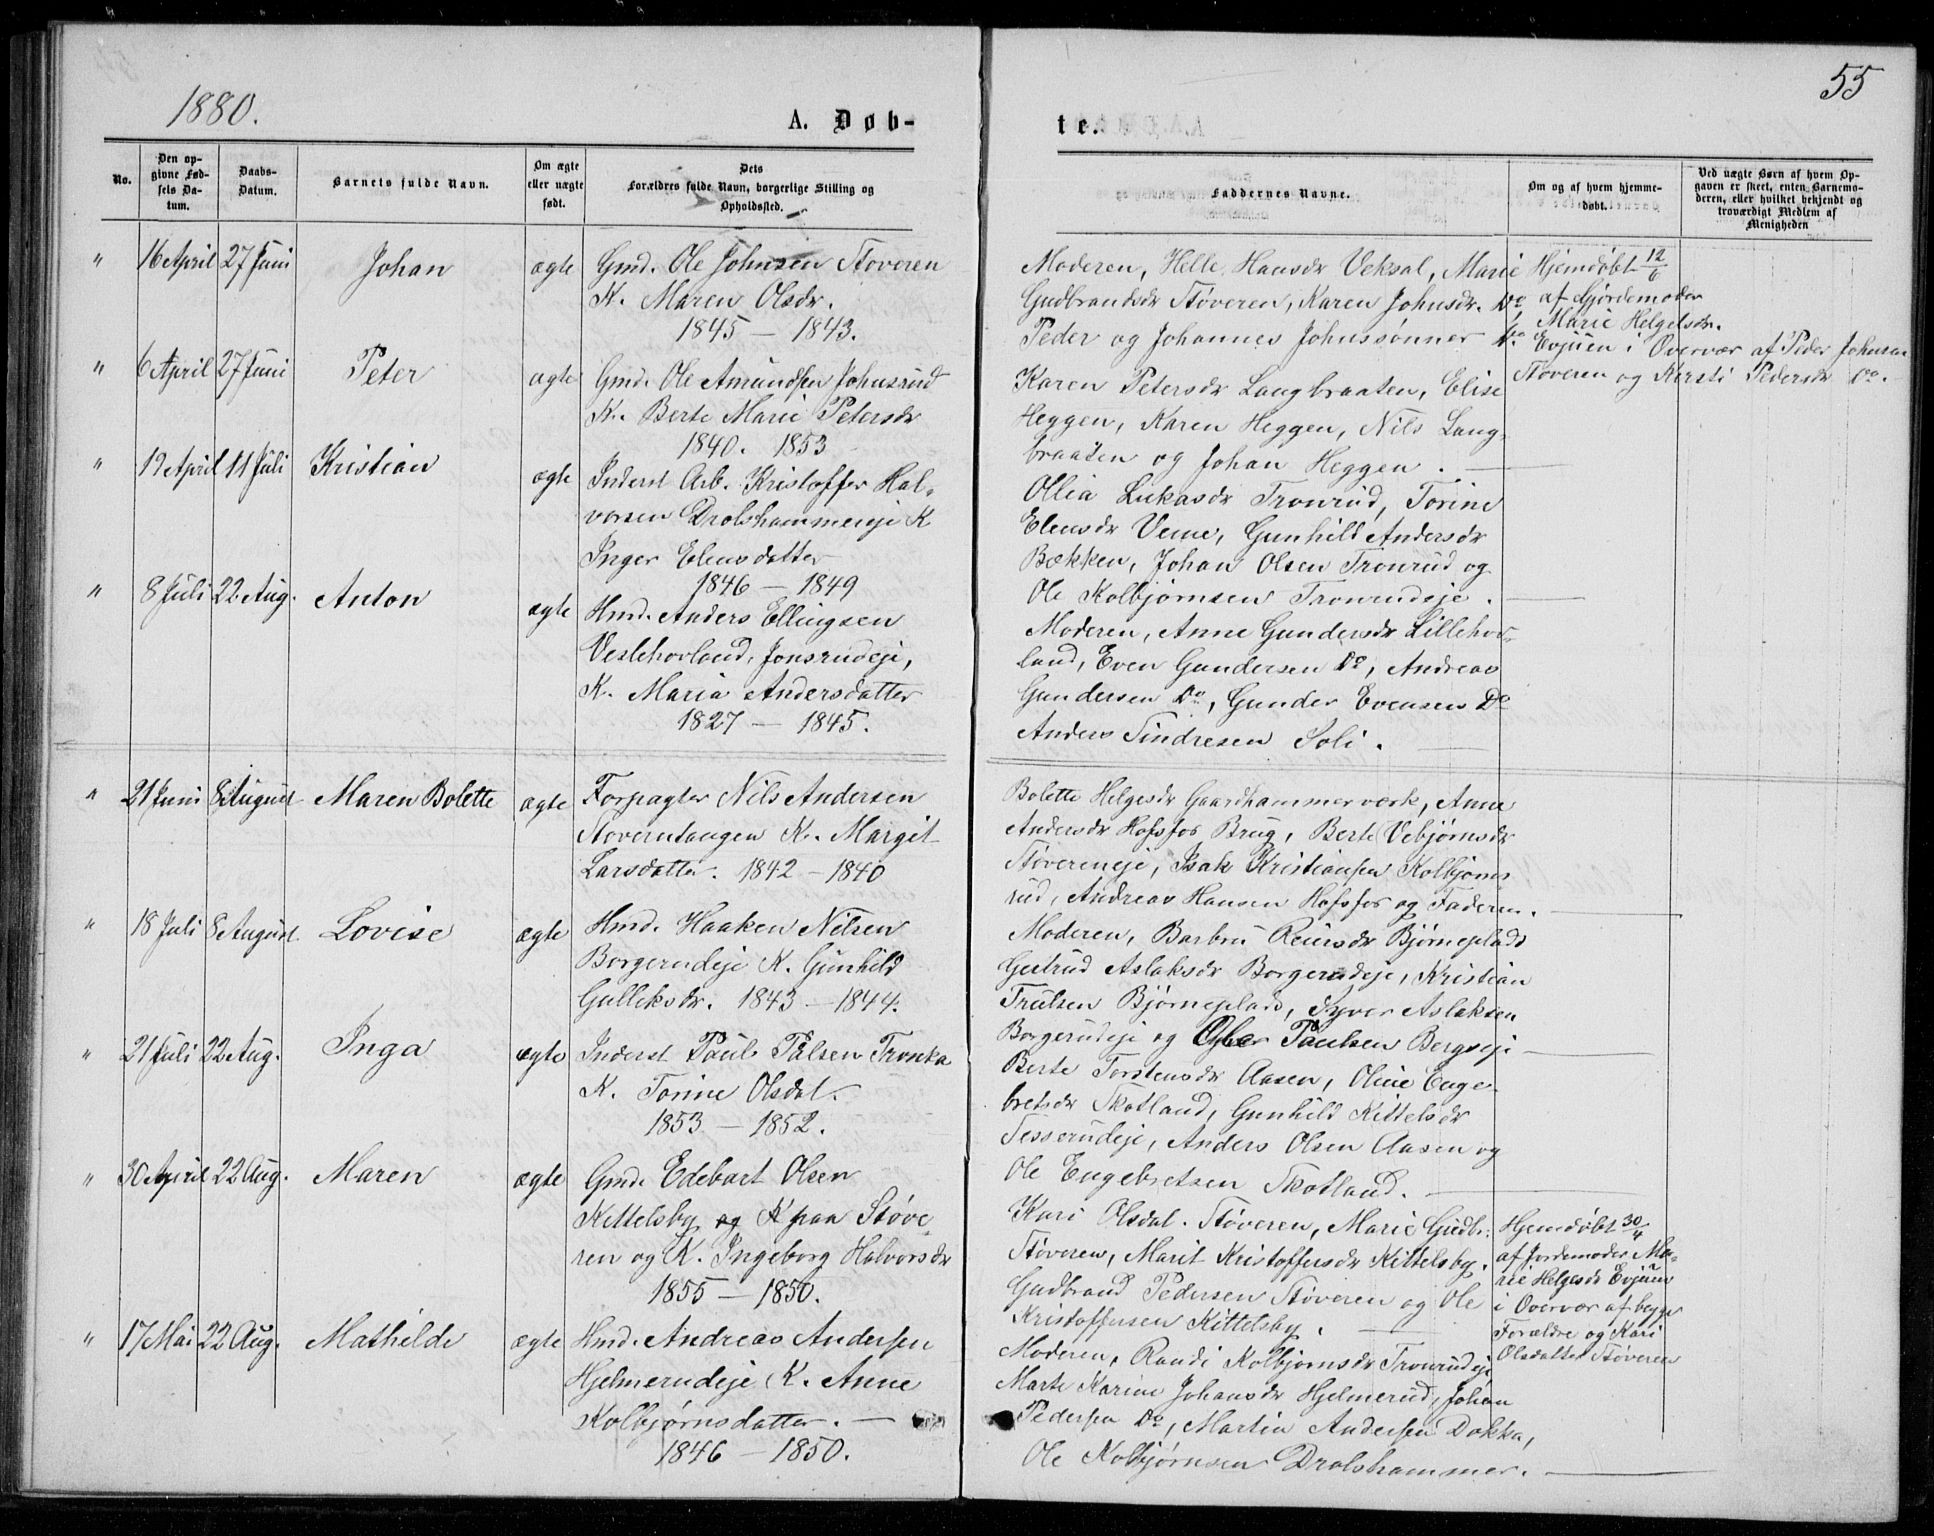 1880.
55
A. Døb-
te.
No.
Den op-
givne Fød-
sels Da-
tum.
Daabs-
Datum.
Barnets fulde Navn.
Om ægte
eller uægte
født.
Dets
Forældres fulde Navn, borgerlige Stilling og
Opholdssted.
Faddernes Navne.
Om og af hvem hjemme-
døbt.
Ved uægte Børn af hvem Op-
gaven er skeet, enten Barnemo-
deren, eller hvilket bekjendt og
troværdigt Medlem af
Menigheden
" 16 April 27 Juni Johan ægte Gmd. Ole Johnsen Støveren
K. Maren Olsdr.
1845 – 1843.
Moderen, Helle Hansdr Veksal, Marie
Gudbrandsdr Støveren, Karen Johnsdr. Do,
Peder og Johannes Johnssønner Do.
Hjemdøbt 12/6
af Gjordemoder
Marie Helgesdr.
Evjuen i Overvær af Peder Johnsen
Støveren og Kersti Pedersdr Do.
" 6 April 27 Juni Peter ægte Gmd. Ole Amundsen Johnsrud
K. Berte Marie Petersdr
1840. 1853
Karen Petersdr Langbraaten, Elise
Heggen, Karen Heggen, Nils Lang-
braaten og Johan Heggen.
" 19 April 11 Juli Kristian ægte Inderst Arb. Kristoffer Hal-
vorsen Drolshammereje K
Inger Elensdatter
1846 – 1849
Ollia Lukasdr Tronrud, Torine
Elensdr Veme, Gunhild Andersdr
Bækken, Johan Olsen Tronrud og
Ole Kolbjørnsen Tronrudeje.
" 8 Juli 22 Aug. Anton ægte Hmd. Anders Ellingsen
Veslehovland, Jonsrudeje,
K. Maria Andersdatter
1827 – 1845.
Moderen, Anne Gundersdr Lillehov-
land, Even Gundersen Do, Andreas
Gundersen Do, Gunder Evensen Do
Anders Sindresen Soli.
" 21 Juni 8 August Maren Bolette ægte Forpagter Nils Andersen
Støverntangen K. Margit
Larsdatter. 1842 – 1840
Bolette Helgesdr Gaardhammerværk, Anne
Andersdr Hofsfos Brug, Berte Vebjørnsdr
Støvereneje, Isak Kristiansen Kolbjørns
rud, Andreas Hansen Hofsfos og Faderen.
" 18 Juli 8 August Lovise ægte Hmd. Haaken Nilsen
Borgerudeje K. Gunhild
Gulleksdr. 1843 – 1844.
Moderen, Barbru Reiersdr Bjørneplads
Gertrud Aslaksdr Borgerudeje, Kristian
Trulsen Bjørneplads, Syver Aslaksen
Borgerudeje og Paulsen Bergseje
" 21 Juli 22 Aug. Inga ægte Inderst Paul Pålsen Tronka
K. Torine Olsdat.
1853 – 1852.
Berte Torstensdr Aasen, Oline Enge-
bretsdr Skotland, Gunhild Kittelsdr
Tesserudeje, Anders Olsen Aasen og
Ole Engebretsen Skotland.
" 30 April 22 Aug. Maren ægte Gmd. Edebart Olsen
Kittelsby og K paa Støve-
ren og K. Ingeborg Halvorsdr
1855 – 1850.
Kari Olsdat. Støveren, Marie Gudbr:
Støveren, Marit Kristoffersdr Kittelsby.
Gudbrand Pedersen Støveren og Ole
Kristoffersen Kittelsby.
Hjemdøbt 30/4
af Jordemoder Ma-
rie Helgesdr Evjuen
i Overvær af begge
Forældre og Kari
Olsdatter Støveren
" 17 Mai 22 Aug. Mathilde ægte Hmd. Andreas Andersen
Hjelmerudeje K. Anne
Kolbjørnsdatter.
1846 – 1850.
Moderen, Randi Kolbjørnsdr Tronrudeje
Marte Karine Johansdr Hjelmerud, Johan
Pedersen Do, Martin Andersen Dokka,
Ole Kolbjørnsen Drolshammer.